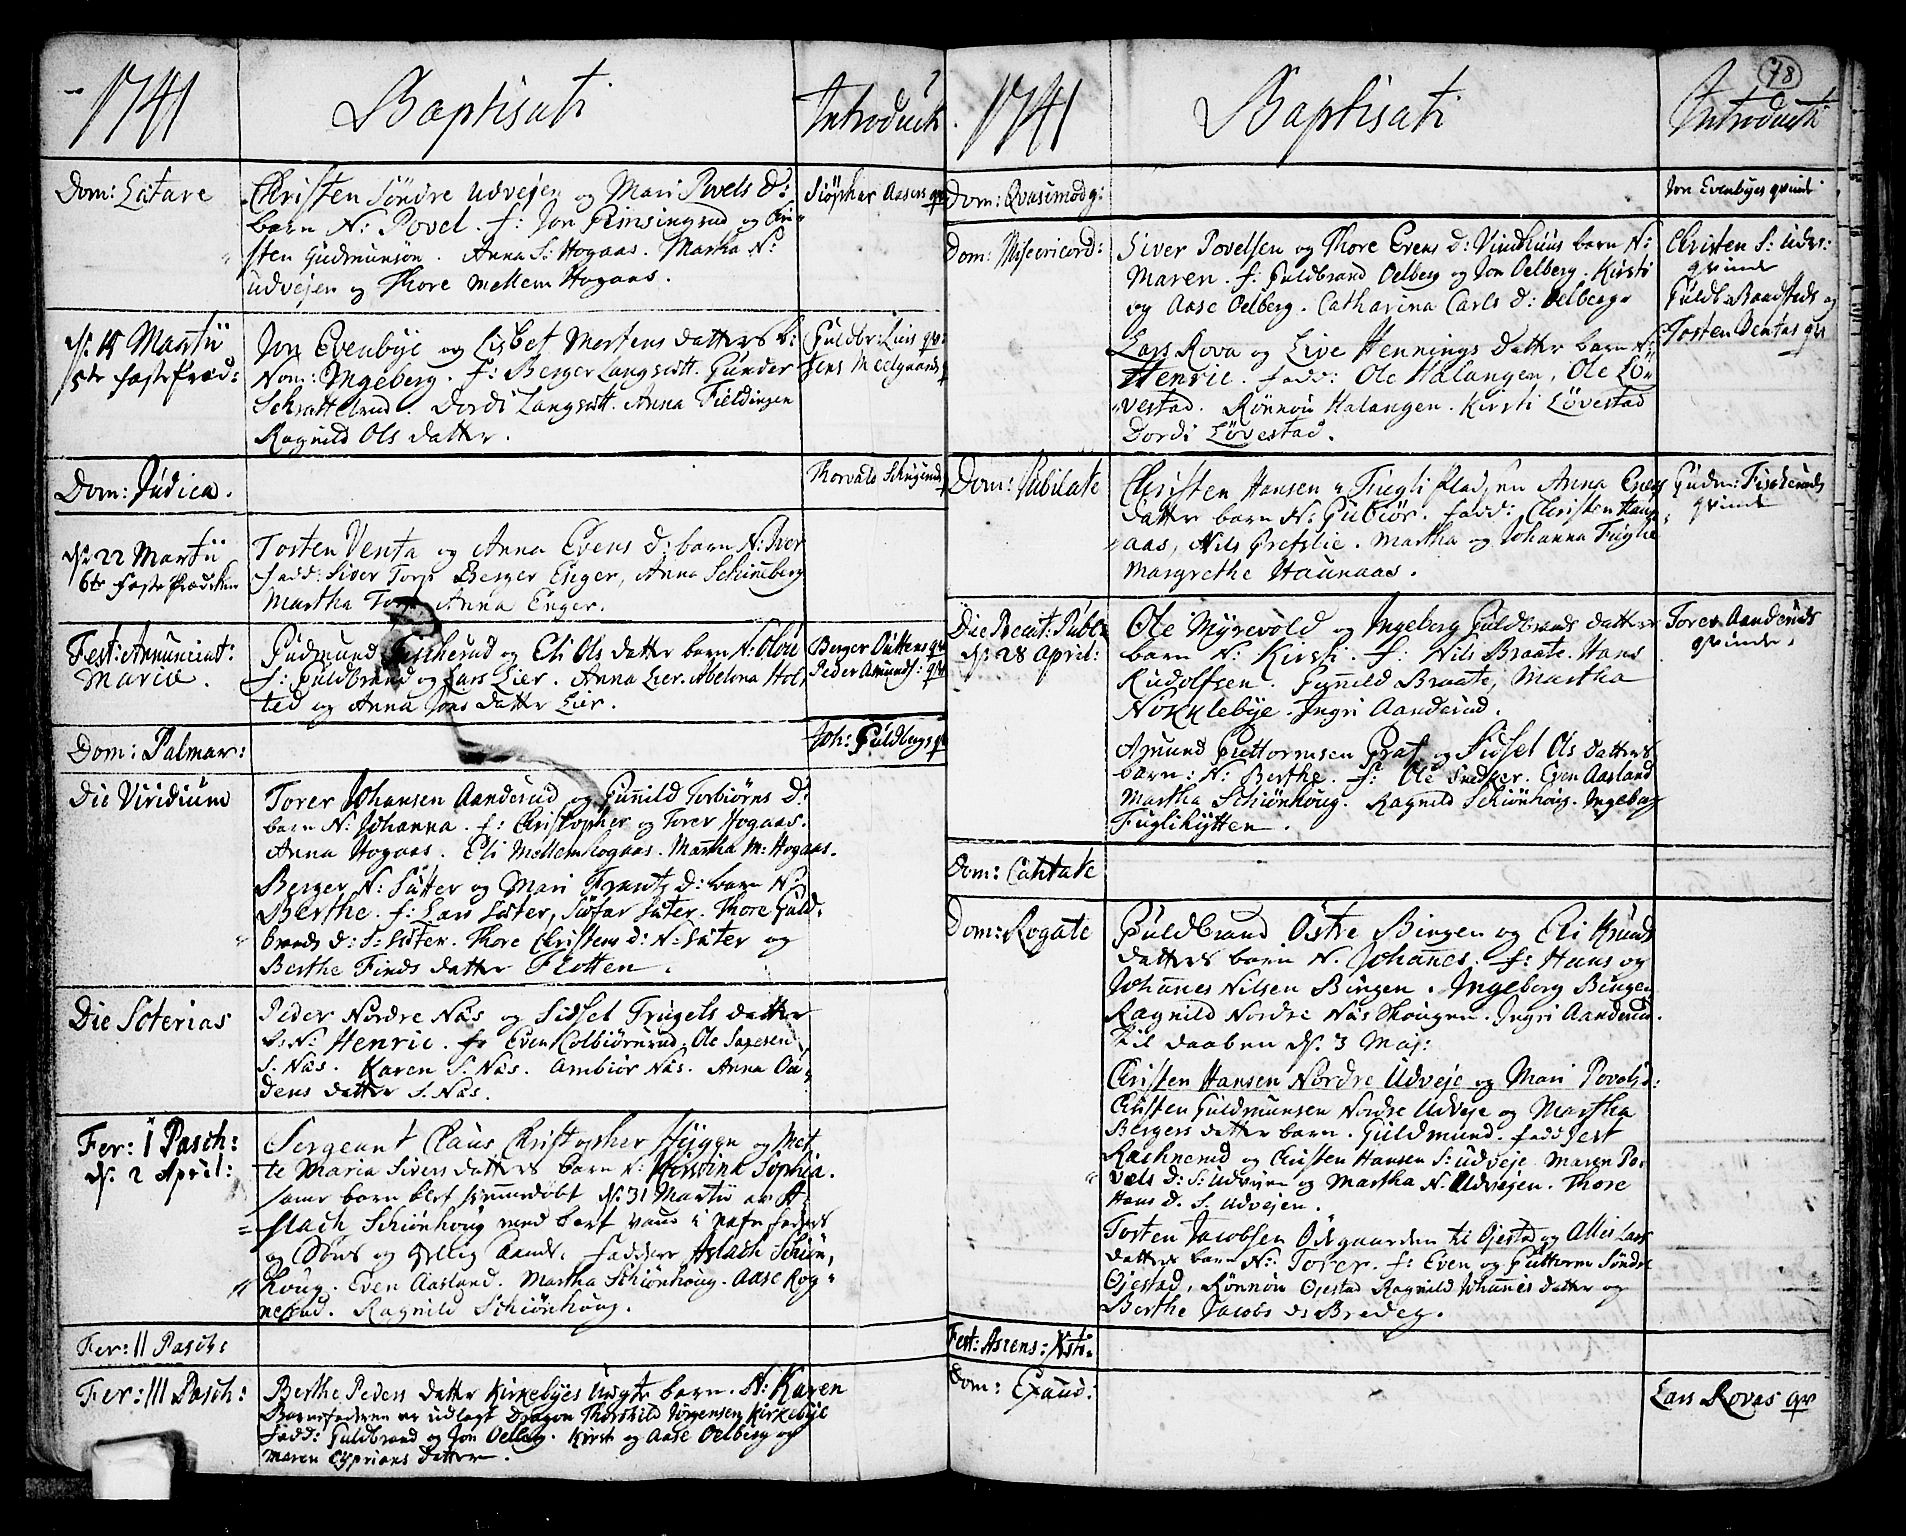 1741
Baptisati
Introduct
Dom: Lætare
Christen Söndre Udvejen og Mari Povels d:
barn N: Povel. f: Jon Rinsingrud og Chri-
sten Gudmunsøn. Anna S: Hogaas. Martha N:
udvejen og Thore Mellem Hogaas.
Siöpher Aasens qv
ds. 15 Martii
5te faste Præd:
Jon Evenbÿe og Lisbet Mortens datters b:
Nom: Ingeberg. f: Berger Langsætt. Gunder
Schrattelrud. Dordi Langsætt. Anna Fieldingen
Ragnild Ols datter.
Guldbr: Liers qv:
Jens Meelgaards qv
Dom: Judica.
Thorvals Schigerud
ds. 22 Martii
6te Faste Prædiken
Tosten Venta og Anna Evens d: barn N: Iver
fadd: Siver Torp Berger Enger, Anna Schinneberg
Martha Torp, Anna Enger.
Fest: Annunciat:
Mariæ.
Gudmund Fischerud og Eli Ols datter barn N: Oløu
f: Guldbrand og Lars Lier. Anna Lier. Abelona Hol-
ted og Anna Jons datter Lier.
Berger Outtens qv
Peder Amundss: qv
Dom: Palmar:
Joh: Guldbergs qv
Die Viridium
Torer Johansen Aanderud og Gunnild Torbiørns d:
barn N: Johanna. f: Christopher og Torer Hogaas.
Anna Hogaas. Eli Mellem Hogaas. Martha M: Hogaas.
Berger N: Sæter og Mari Frantz d: barn N:
Berthe. f: Lars Sæter, Siöfar Sæter. Thore Guld-
brands d: S: Sæter. Thore Christens d: N: Sæter og
Berthe Finds datter Flotten.
Die Soterias
Peder Nordre Næs og Sidsel Trugels datter
b: N: Henric. f: Even Kolbiørnrud. Ole Sagesen
S. Næs. Karen S. Næs. Ambiør Næs. Anna Ou-
dens datter S. Næs.
Fer: I Pasch:
ds. 2 April:
Sergeant Claus Christopher Heÿgen og Met-
te Maria Sivers datters barn N: Sophia.
samme barn blef hiemmedöbt ds. 31 Martii af A-
slach Schiönhoug med bort vand i Nafn faders
og Söns og hellig Aands, faddere Aslach Schiön-
houg. Even Aasland. Martha Schiönhoug. Aase Rog-
nerud. Ragnild Schiönhoug.
Fer: II Pasch:
Fer: III Pasch:
Berthe Peders datter Kirkebÿes Uægte barn. N: Karen
Barnefaderen er udlagt Dragon Thorchild Jørgensen Kirkebÿe
fadd: Guldbrand og Jon Oelberg. Kirsti og Aase Oelberg og
Maren Cyprians datter.
78
1741
Baptisati
Introduct
Dom: Qvasimodog:
Jon Evenbÿes qvinde
Dom: Misericord:
Siver Povelsen og Thore Evens d: Vindhuus barn N:
Maren. f: Guldbrand Oelberg og Jon Oelberg. Kirsti
og Aase Oelberg. Catharina Carls d: Oelberg
Lars Rova og Live Hennings datter barn N:
Henric. fadd: Ole Halangen, Ole Lö-
vestad. Rönnou Halangen. Kirsti Lövestad
Dordi Lövestad.
Christen S: Udv:
qvinde
Guldb: Baadsteds og
Tosten Ventas qv
Dom: Jubilate
Christen Hansen i Fugli Pladsen Anna Evens
datter barn N: Gubiör. fadd: Christen Haun-
aas, Nils Grefslie. Martha og Johanna Fuglie
Margrethe Haunaas.
Gudm: Fischeruds
qvinde
Die Precat: Publ:
ds. 28 April:
Ole Mÿrevold og Ingeberg Guldbrands datter
barn N: Kirsti. f: Nils Braate. Hans
Rudolfsen. Gunnild Braate, Martha
Nokklebÿe. Ingri Aanderud.
Amund Guttormsen Graf og Sidsel Ols datters
barn: N: Berthe. f: Ole Snedker. Even Aasland
Martha Schiönhoug. Ragnild Schiönhoug. Ingeborg
Fuglihÿtten.
Torer Aanderuds
qvinde.
Dom: Cantate
Dom: Rogate
Guldbrand Östre Bingen og Eli Knuds
datters barn N. Johannes. f: Hans og
Johannes Nilsen Bingen. Ingeborg Bingen
Ragnild Nordre Næs Skougen. Ingri Aanderud.
til daaben ds. 3 Maj:
Christen Hansen Nordre Udveje og Mari Povels d:
Christen Guldmunsen Nordre Udveje og Martha
Bergers datter barn. Guldmund. fadd Jest
Rachnerud og Christen Hansen S: Udveje. Maren Po-
vels d: S: Udvejen og Martha N. Udvejen. Thore
Hans d. S. Udvejen.
Tosten Jacobsen Ödegaarden til Ojestad og Alles Lars
datters barn N: Torer. f: Even og Guttorm Söndre
Ojestad, Rönnou Ojestad Ragnild Johannes datter og
Berthe Jacobs d: Bredeg.
Fest: Ascens: Xsti.
Dom: Exaud:
Lars Rovas qv